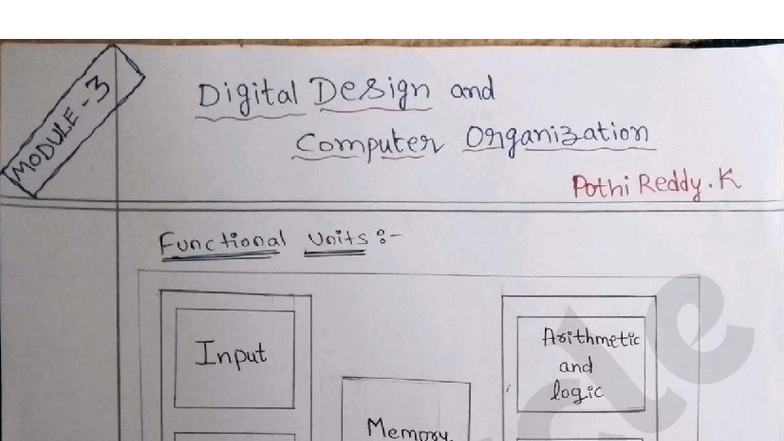 MODULE - 3
Digital Design and
Computer Organization
Pothi Reddy. K
Functional Units :-
Input
Arithmetic
and
logic
Memory